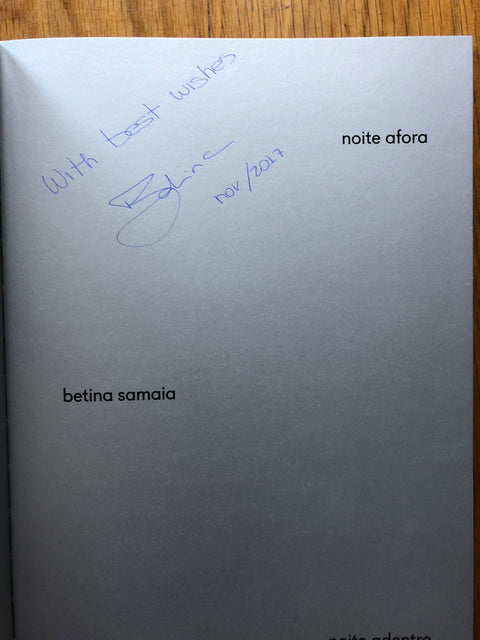 With best wishes
Betina
nov/2017
noite afora
betina samaia
noite adentro